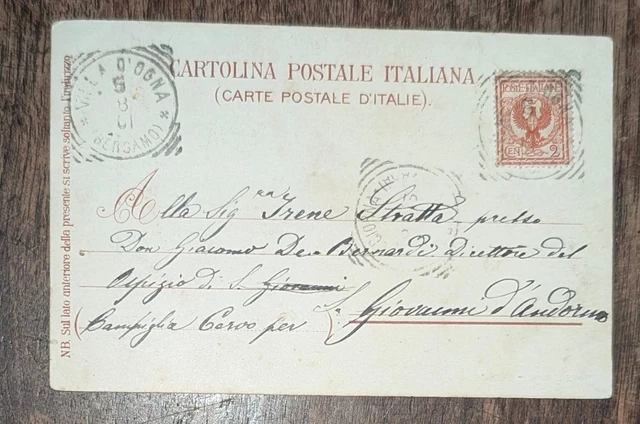 CARTOLINA POSTALE ITALIANA
(CARTE POSTALE D'ITALIE).
VILLA D'OGNA
8
01
(BERGAMO)
POSTE ITALIANE
CENT. 2
Alla Sig.ra Irene Stratta presso
Don Giacomo De Bernardi Direttore del
Ospizio di S. Giovanni
(Campiglia Cervo per) S. Giovanni d'Andorno
NB. Sul lato anteriore della presente si scrive soltanto l'indirizzo